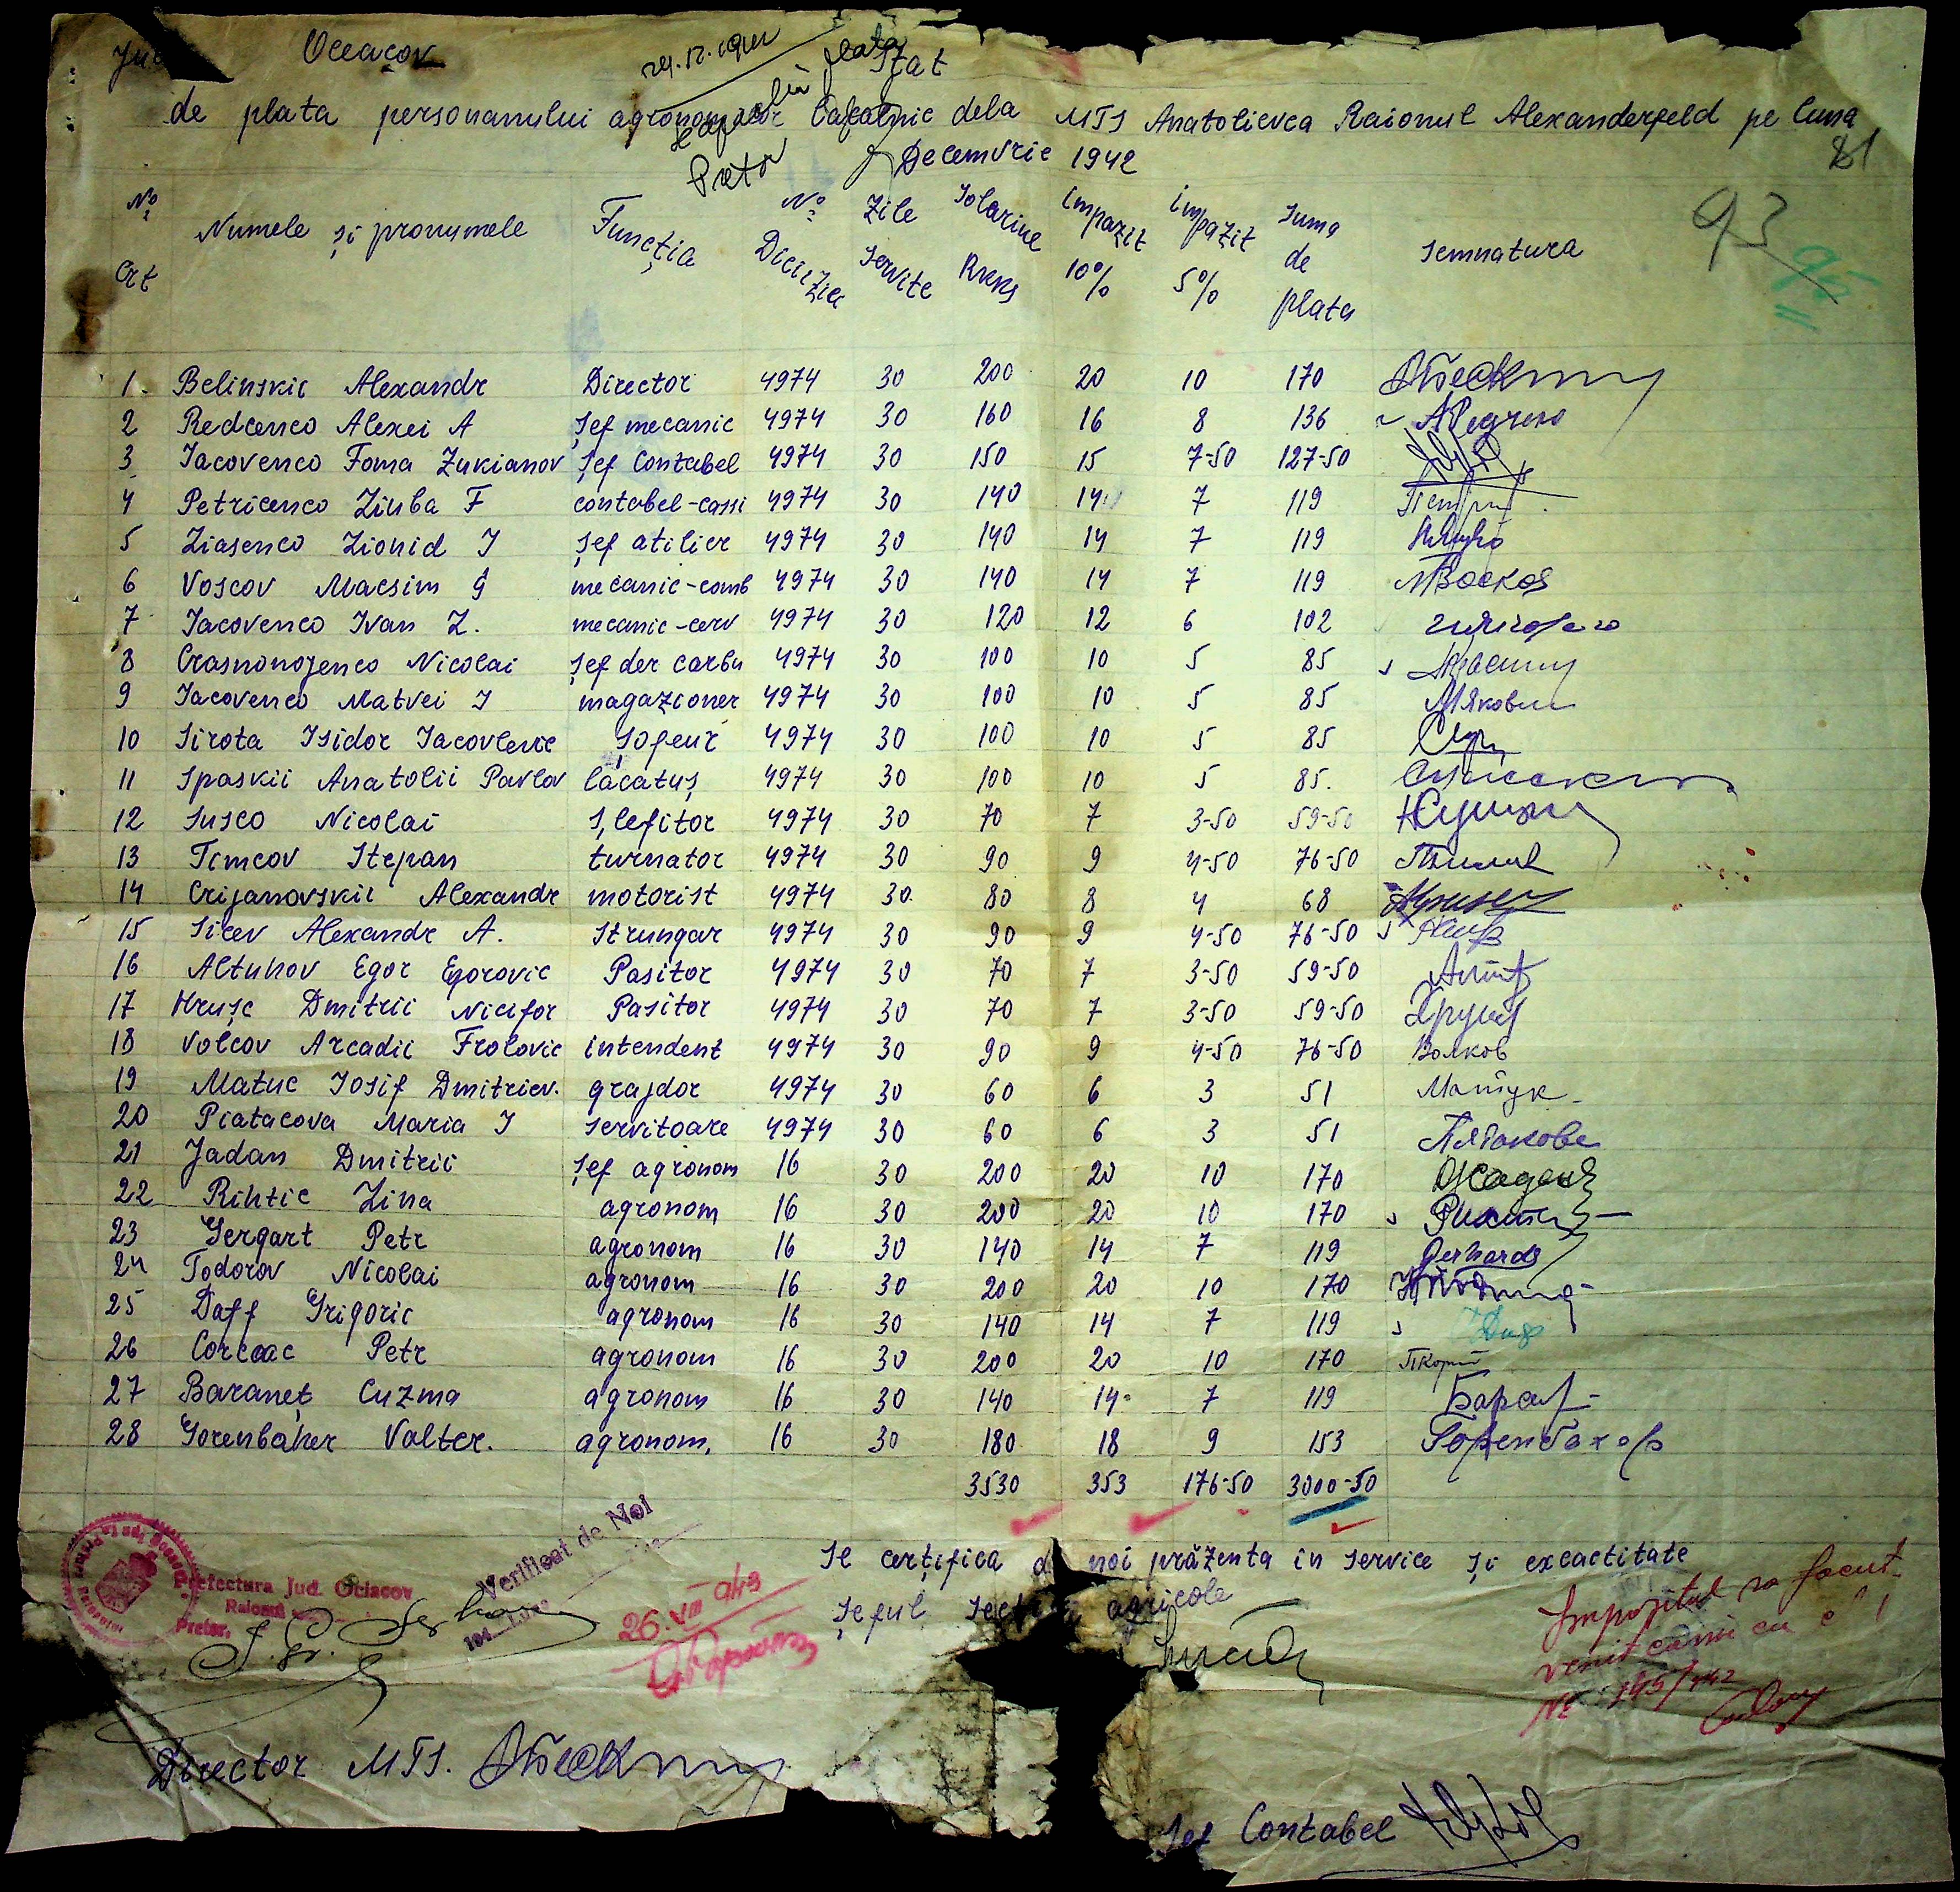 Oceacov
Stat
de plata personanului agronomic dela MTS Anatolievca Raionul Alexanderfeld pe luna
Decemvrie 1942
81
93
Pretor
№ Crt Numele și pronumele Funcția № Diciizia Zile Servite Solarine RKKS impazit 10% impazit 5% Suma de plata Semnatura
1. Belinskii Alexandr Director 4974 30 200 20 10 170
2 Redcenco Alexei A șef mecanic 4974 30 160 16 8 136
3 Iacovenco Foma Zukianov șef Contabel 4974 30 150 15 7-50 127-50
4 Petricenco Ziuba F contabel-cassi 4974 30 140 14 7 119
5 Ziasenco Zionid I șef atilier 4974 30 140 14 7 119
6 Voscov Macsim G mecanic-comb 4974 30 140 14 7 119 МВосков
7 Iacovenco Ivan Z. mecanic-cerv 4974 30 120 12 6 102
8 Crasnonojenco Nicolai șef der carbu 4974 30 100 10 5 85
9 Iacovenco Matvei I magazioner 4974 30 100 10 5 85 МЯкович
10 Sirota Isidor Iacovlevic șofeur 4974 30 100 10 5 85
11 Spaskii Anatolii Pavlov lăcătuș 4974 30 100 10 5 85.
12 Susco Nicolai șlefitor 4974 30 70 7 3-50 59-50
13 Timcov Stepan turnator 4974 30 90 9 4-50 76-50
14 Crijanovskii Alexandr motorist 4974 30. 80 8 4 68
15 Sicev Alexandr A. Strungar 4974 30 90 9 4-50 76-50
16 Altuhov Egor Egorovic Pasitor 4974 30 70 7 3-50 59-50
17 Hrușc Dmitrii Nicifor Pasitor 4974 30 70 7 3-50 59-50
18 Volcov Arcadii Frolovic intendent 4974 30 90 9 4-50 76-50 Волков
19 Matuc Iosif Dmitriev. grajdor 4974 30 60 6 3 51 Матук
20 Piatacova Maria I servitoare 4974 30 60 6 3 51 Пятакова
21 Jadan Dmitrii șef agronom 16 30 200 20 10 170 Жадан
22 Rihtic Zina agronom 16 30 200 20 10 170
23 Gergart Petr agronom 16 30 140 14 7 119 Gerhards
24 Todorov Nicolai agronom 16 30 200 20 10 170
25 Daff Grigoric agronom 16 30 140 14 7 119
26 Corcoac Petr agronom 16 30 200 20 10 170
27 Baraneț Cuzma agronom 16 30 140 14 7 119
28 Gorenbaher Valter. agronom. 16 30 180 18 9 153 Горенбахер
3530 353 176-50 3000-50
Se certifica noi prăzenta in service și excactitate
șeful agricole
Prefectura Jud. Ociacov
Raionul
Pretor,
Verificat de Noi
26.VIII 943
Impozitul sa facut
Director MTS.
Șef Contabel